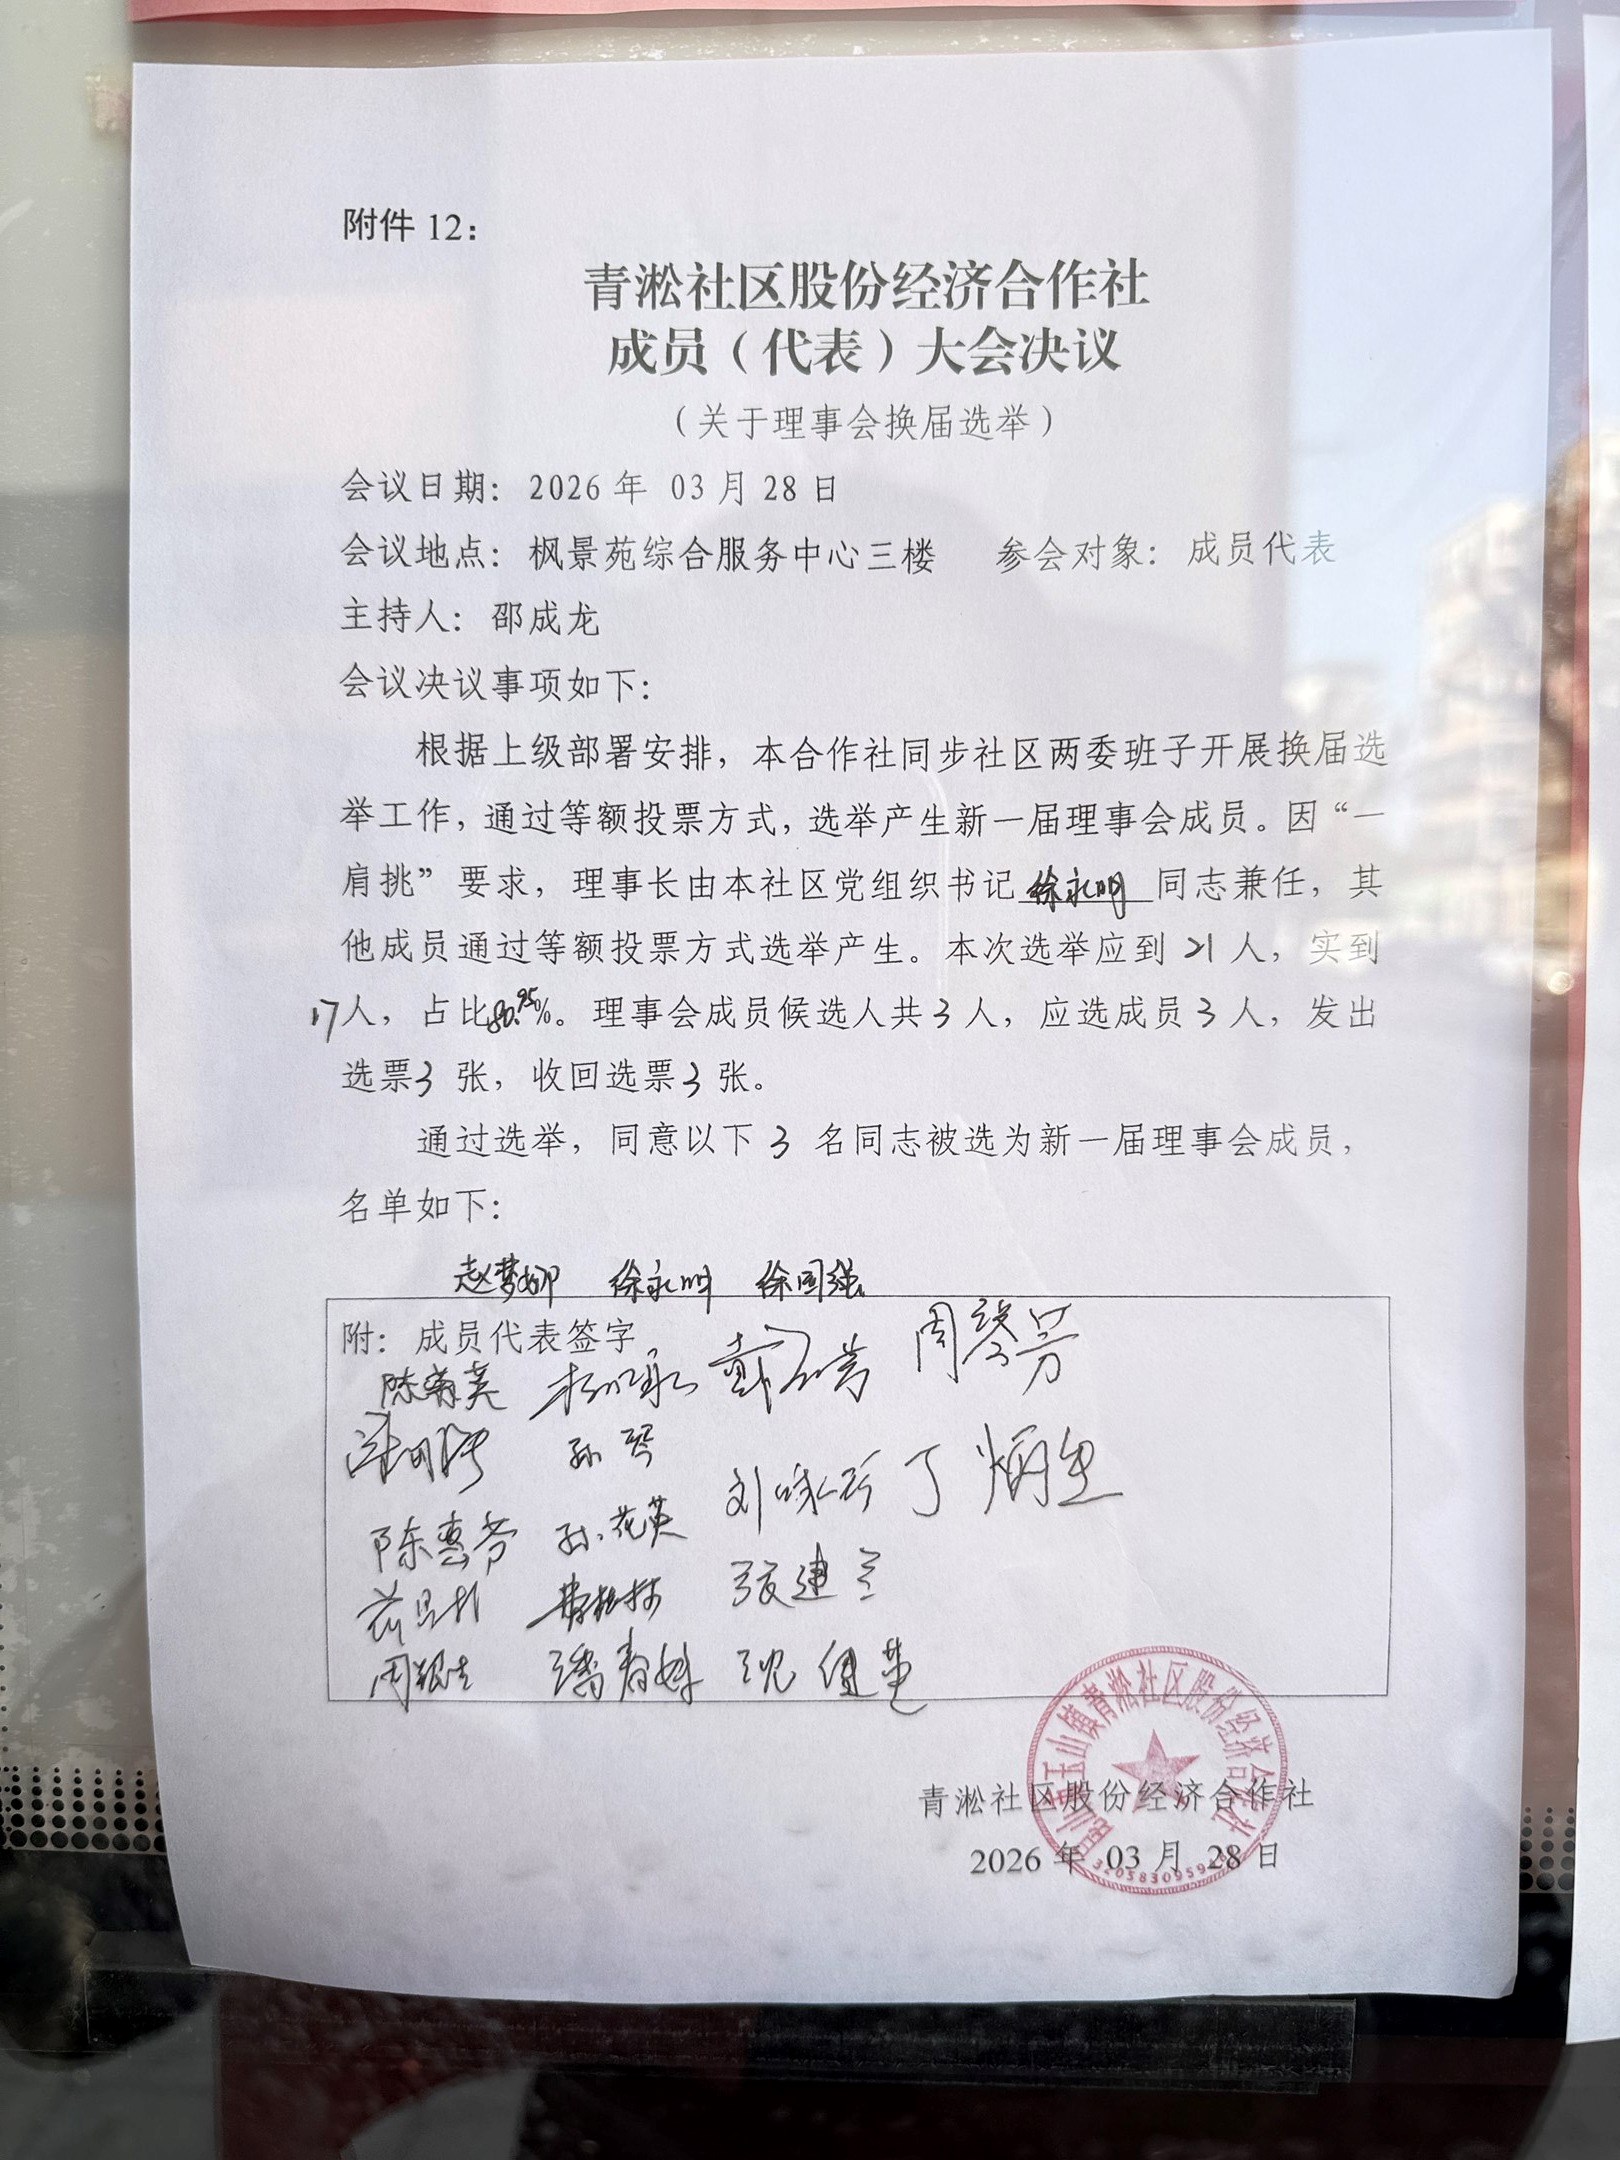 附件 12：
青淞社区股份经济合作社
成员（代表）大会决议
（关于理事会换届选举）
会议日期： 2026 年 03 月 28 日
会议地点：枫景苑综合服务中心三楼 参会对象：成员代表
主持人：邵成龙
会议决议事项如下：
根据上级部署安排，本合作社同步社区两委班子开展换届选
举工作，通过等额投票方式，选举产生新一届理事会成员。因“一
肩挑”要求，理事长由本社区党组织书记 徐永明 同志兼任，其
他成员通过等额投票方式选举产生。本次选举应到 21 人，实到
17人，占比80.95%。理事会成员候选人共 3 人，应选成员 3 人，发出
选票 3 张，收回选票 3 张。
通过选举，同意以下 3 名同志被选为新一届理事会成员，
名单如下：
赵梦娜 徐永明 徐国强
附：成员代表签字
陈菊英 周琴芳
孙琴 丁炳生
陈惠芳 孙花英 张建兰
潘春妹
青淞社区股份经济合作社
2026 年 03 月 28 日
昆山市玉山镇青淞社区股份经济合作社